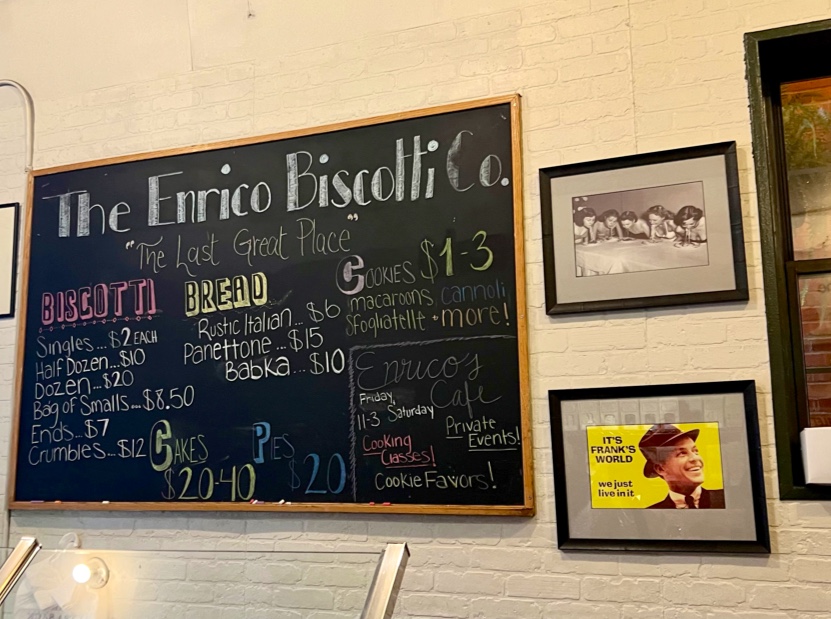 The Enrico Biscotti Co.
"The Last Great Place"
BISCOTTI
Singles...$2 EACH
Half Dozen...$10
Dozen...$20
Bag of Smalls...$8.50
Ends...$7
Crumbles...$12
BREAD
Rustic Italian...$6
Panettone...$15
Babka...$10
COOKIES $1-3
macaroons, cannoli
sfogliatelle + more!
CAKES
$20-40
PIES
$20
Enrico's
Cafe
Friday,
11-3 Saturday
Private
Events!
Cooking
Classes!
Cookie Favors!
IT'S
FRANK'S
WORLD
we just
live in it